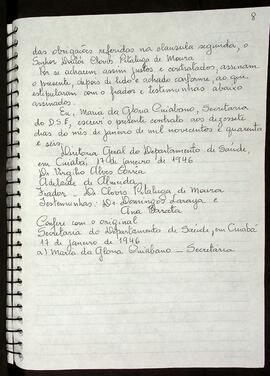 8
das obrigações referidas na clausula segunda, o
Senhor Doutor Clovis Pitaluga de Moura.
Por se acharem assim justos e contratados, assinam
o presente, depois de lido e achado conforme, ao que
estipularam com o fiador e testemunhas abaixo
assinados.
Eu, Maria da Gloria Quiabano, Secretaria
do D.S.F, escrevi o presente contrato aos dezessete
dias do mês de janeiro de mil novecentos e quarenta
e seis.
Diretoria Geral do Departamento de Saúde,
em Cuiabá, 17 de janeiro de 1946
Dr. Virgilio Alves Corrêa
Adelaide de Almeida
Fiador - Dr. Clovis Pitaluga de Moura
Testemunhas: Dr. Domingos e
Ana
Confere com o original
Secretaria do Departamento de Saúde, em Cuiabá
17 de janeiro de 1946
a) Maria da Gloria Quiabano - Secretária